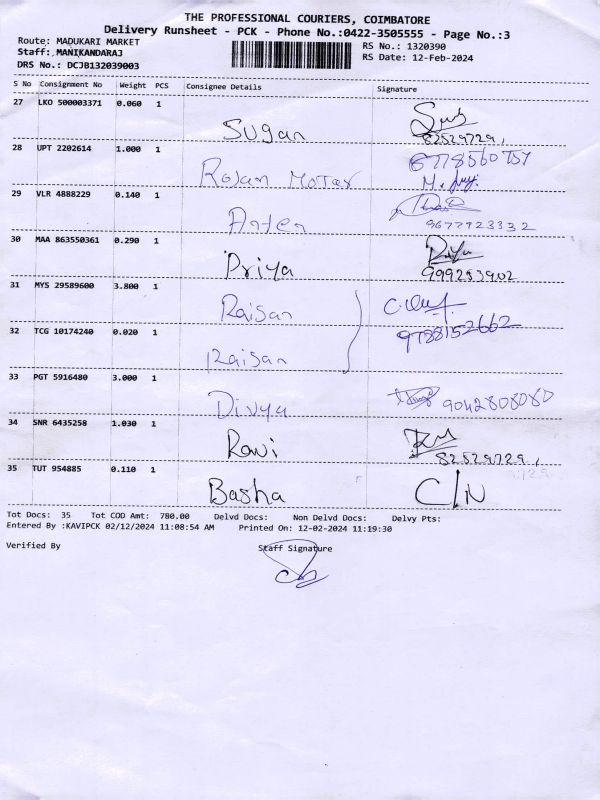 THE PROFESSIONAL COURIERS, COIMBATORE
Delivery Runsheet - PCK - Phone No.:0422-3505555 - Page No.:3
Route: MADUKARI MARKET
RS No.: 1320390
Staff: MANIKANDARAJ
RS Date: 12-Feb-2024
DRS No.: DCJB132039003
S No Consignment No Weight PCS Consignee Details Signature
27 LKO 500003371 0.060 1
Sugan 82529729,
28 UPT 2202614 1.000 1
Rojan Motar
29 VLR 4888229 0.140 1
9677923332
30 MAA 863550361 0.290 1
Priya 999253902
31 MYS 29589600 3.800 1
Raisan
32 TCG 10174240 0.020 1
9788152662
Raisan
33 PGT 5916480 3.000 1
Divya 9042808080
34 SNR 6435258 1.030 1
Ravi 82529729,
35 TUT 954885 0.110 1
Basha C/N
Tot Docs: 35 Tot COD Amt: 780.00 Delvd Docs: Non Delvd Docs: Delvy Pts:
Entered By :KAVIPCK 02/12/2024 11:08:54 AM Printed On: 12-02-2024 11:19:30
Verified By Staff Signature